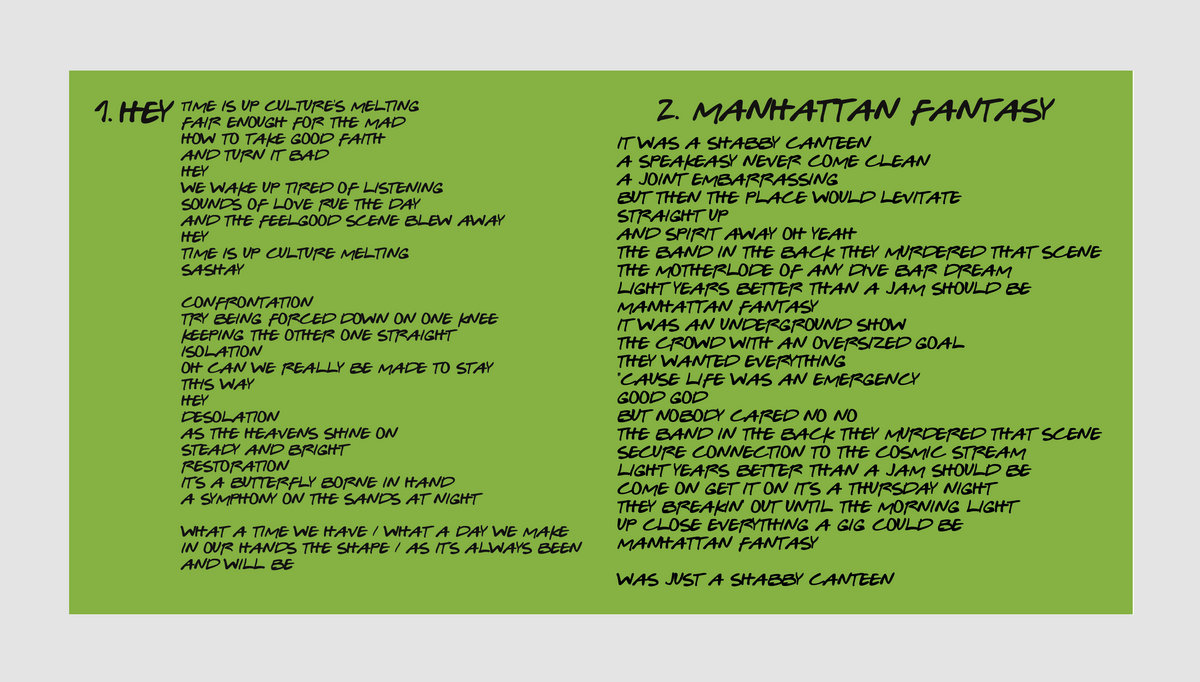 1. HEY
TIME IS UP CULTURE'S MELTING
FAIR ENOUGH FOR THE MAD
HOW TO TAKE GOOD FAITH
AND TURN IT BAD
HEY
WE WAKE UP TIRED OF LISTENING
SOUNDS OF LOVE RUE THE DAY
AND THE FEELGOOD SCENE BLEW AWAY
HEY
TIME IS UP CULTURE MELTING
SASHAY

CONFRONTATION
TRY BEING FORCED DOWN ON ONE KNEE
KEEPING THE OTHER ONE STRAIGHT
ISOLATION
OH CAN WE REALLY BE MADE TO STAY
THIS WAY
HEY
DESOLATION
AS THE HEAVENS SHINE ON
STEADY AND BRIGHT
RESTORATION
IT'S A BUTTERFLY BORNE IN HAND
A SYMPHONY ON THE SANDS AT NIGHT

WHAT A TIME WE HAVE / WHAT A DAY WE MAKE
IN OUR HANDS THE SHAPE / AS IT'S ALWAYS BEEN
AND WILL BE

2. MANHATTAN FANTASY
IT WAS A SHABBY CANTEEN
A SPEAKEASY NEVER COME CLEAN
A JOINT EMBARRASSING
BUT THEN THE PLACE WOULD LEVITATE
STRAIGHT UP
AND SPIRIT AWAY OH YEAH
THE BAND IN THE BACK THEY MURDERED THAT SCENE
THE MOTHERLODE OF ANY DIVE BAR DREAM
LIGHT YEARS BETTER THAN A JAM SHOULD BE
MANHATTAN FANTASY
IT WAS AN UNDERGROUND SHOW
THE CROWD WITH AN OVERSIZED GOAL
THEY WANTED EVERYTHING
'CAUSE LIFE WAS AN EMERGENCY
GOOD GOD
BUT NOBODY CARED NO NO
THE BAND IN THE BACK THEY MURDERED THAT SCENE
SECURE CONNECTION TO THE COSMIC STREAM
LIGHT YEARS BETTER THAN A JAM SHOULD BE
COME ON GET IT ON IT'S A THURSDAY NIGHT
THEY BREAKIN' OUT UNTIL THE MORNING LIGHT
UP CLOSE EVERYTHING A GIG COULD BE
MANHATTAN FANTASY

WAS JUST A SHABBY CANTEEN